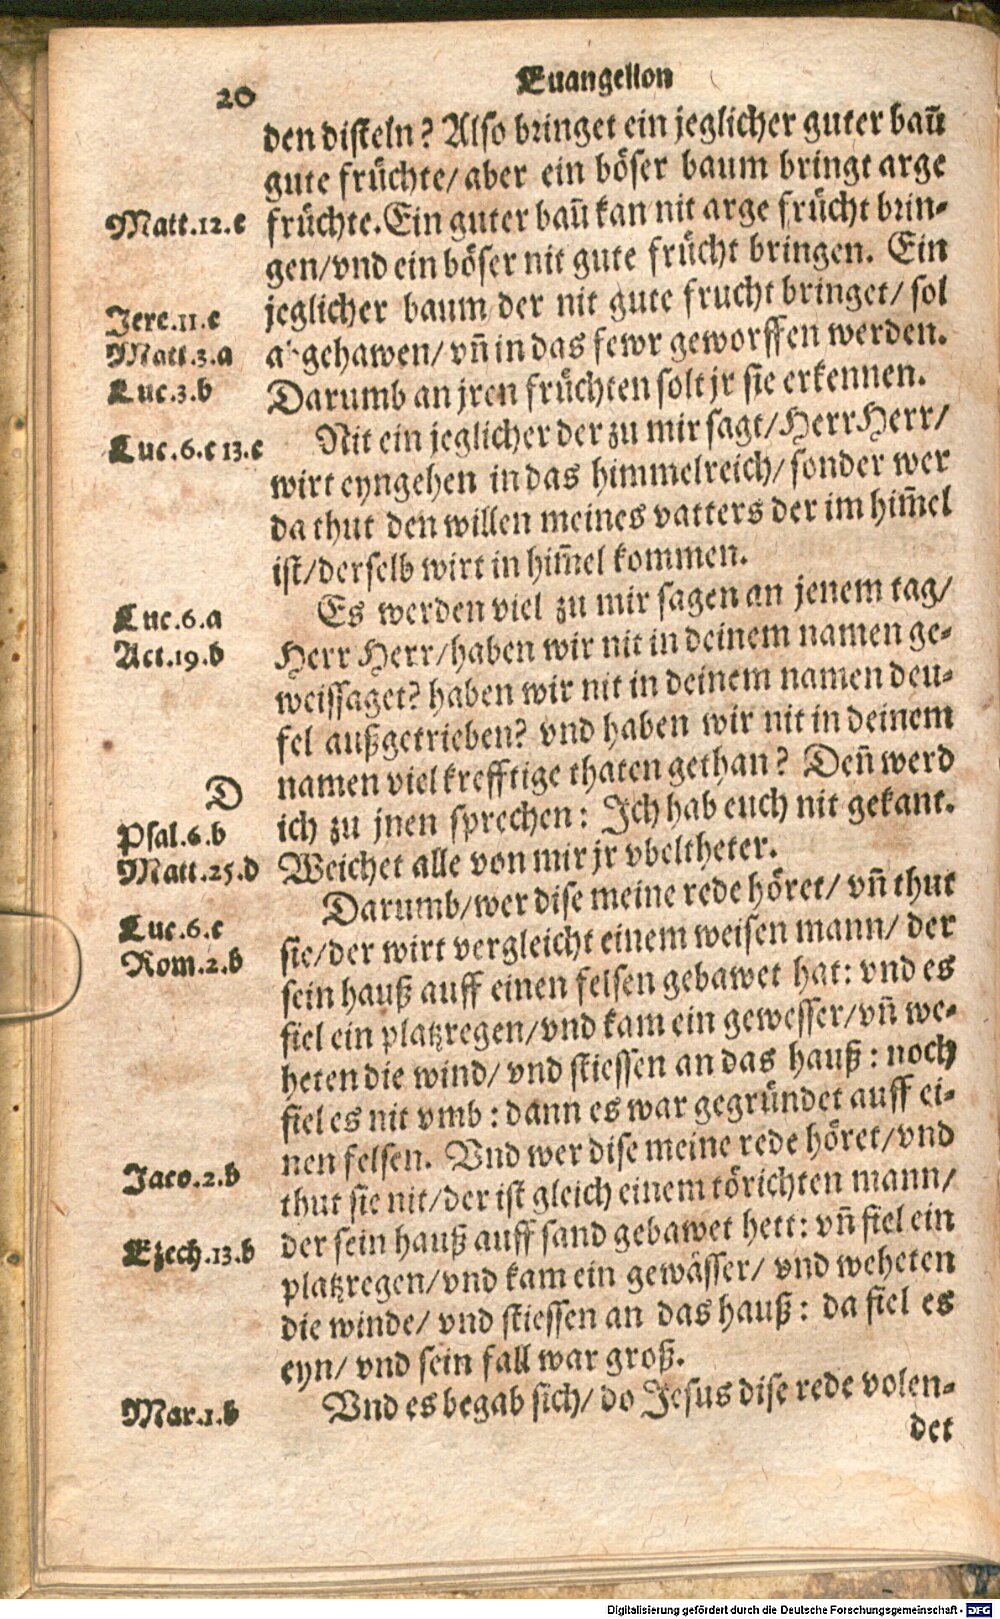 20
Euangelion
den disteln? Also bringet ein jeglicher guter bau&#771;
gute früchte/ aber ein böser baum bringt arge
Matt.12.c
früchte. Ein guter bau&#771; kan nit arge frücht brin-
gen/ vnd ein böser nit gute frücht bringen. Ein
Jere.11.c
jeglicher baum der nit gute frucht bringet/ sol
Matt.3.a
abgehawen/ vn&#771; in das fewr geworffen werden.
Luc.3.b
Darumb an jren früchten solt jr sie erkennen.
Luc.6.c 13.c
Nit ein jeglicher der zu mir sagt/ Herr Herr/
wirt eyngehen in das himmelreich/ sonder wer
da thut den willen meines vatters der im him&#771;el
ist/ derselb wirt in him&#771;el kommen.
Luc.6.a
Es werden viel zu mir sagen an jenem tag/
Act.19.b
Herr Herr/ haben wir nit in deinem namen ge-
weissaget? haben wir nit in deinem namen deu-
fel außgetrieben? vnd haben wir nit in deinem
D
namen viel krefftige thaten gethan? Den&#771; werd
Psal.6.b
ich zu jnen sprechen: Ich hab euch nit gekant.
Matt.25.d
Weichet alle von mir jr vbeltheter.
Luc.6.c
Darumb/ wer dise meine rede höret/ vn&#771; thut
Rom.2.b
sie/ der wirt vergleicht einem weisen mann/ der
sein hauß auff einen felsen gebawet hat: vnd es
fiel ein platzregen/ vnd kam ein gewesser/ vn&#771; we-
heten die wind/ vnd stiessen an das hauß: noch
fiel es nit vmb: dann es war gegründet auff ei-
nen felsen. Vnd wer dise meine rede höret/ vnd
Jaco.2.b
thut sie nit/ der ist gleich einem törichten mann/
Ezech.13.b
der sein hauß auff sand gebawet hett: vn&#771; fiel ein
platzregen/ vnd kam ein gewässer/ vnd weheten
die winde/ vnd stiessen an das hauß: da fiel es
eyn/ vnd sein fall war groß.
Mar.1.b
Vnd es begab sich/ do Jesus dise rede volen-
det
Digitalisierung gefördert durch die Deutsche Forschungsgemeinschaft - DFG